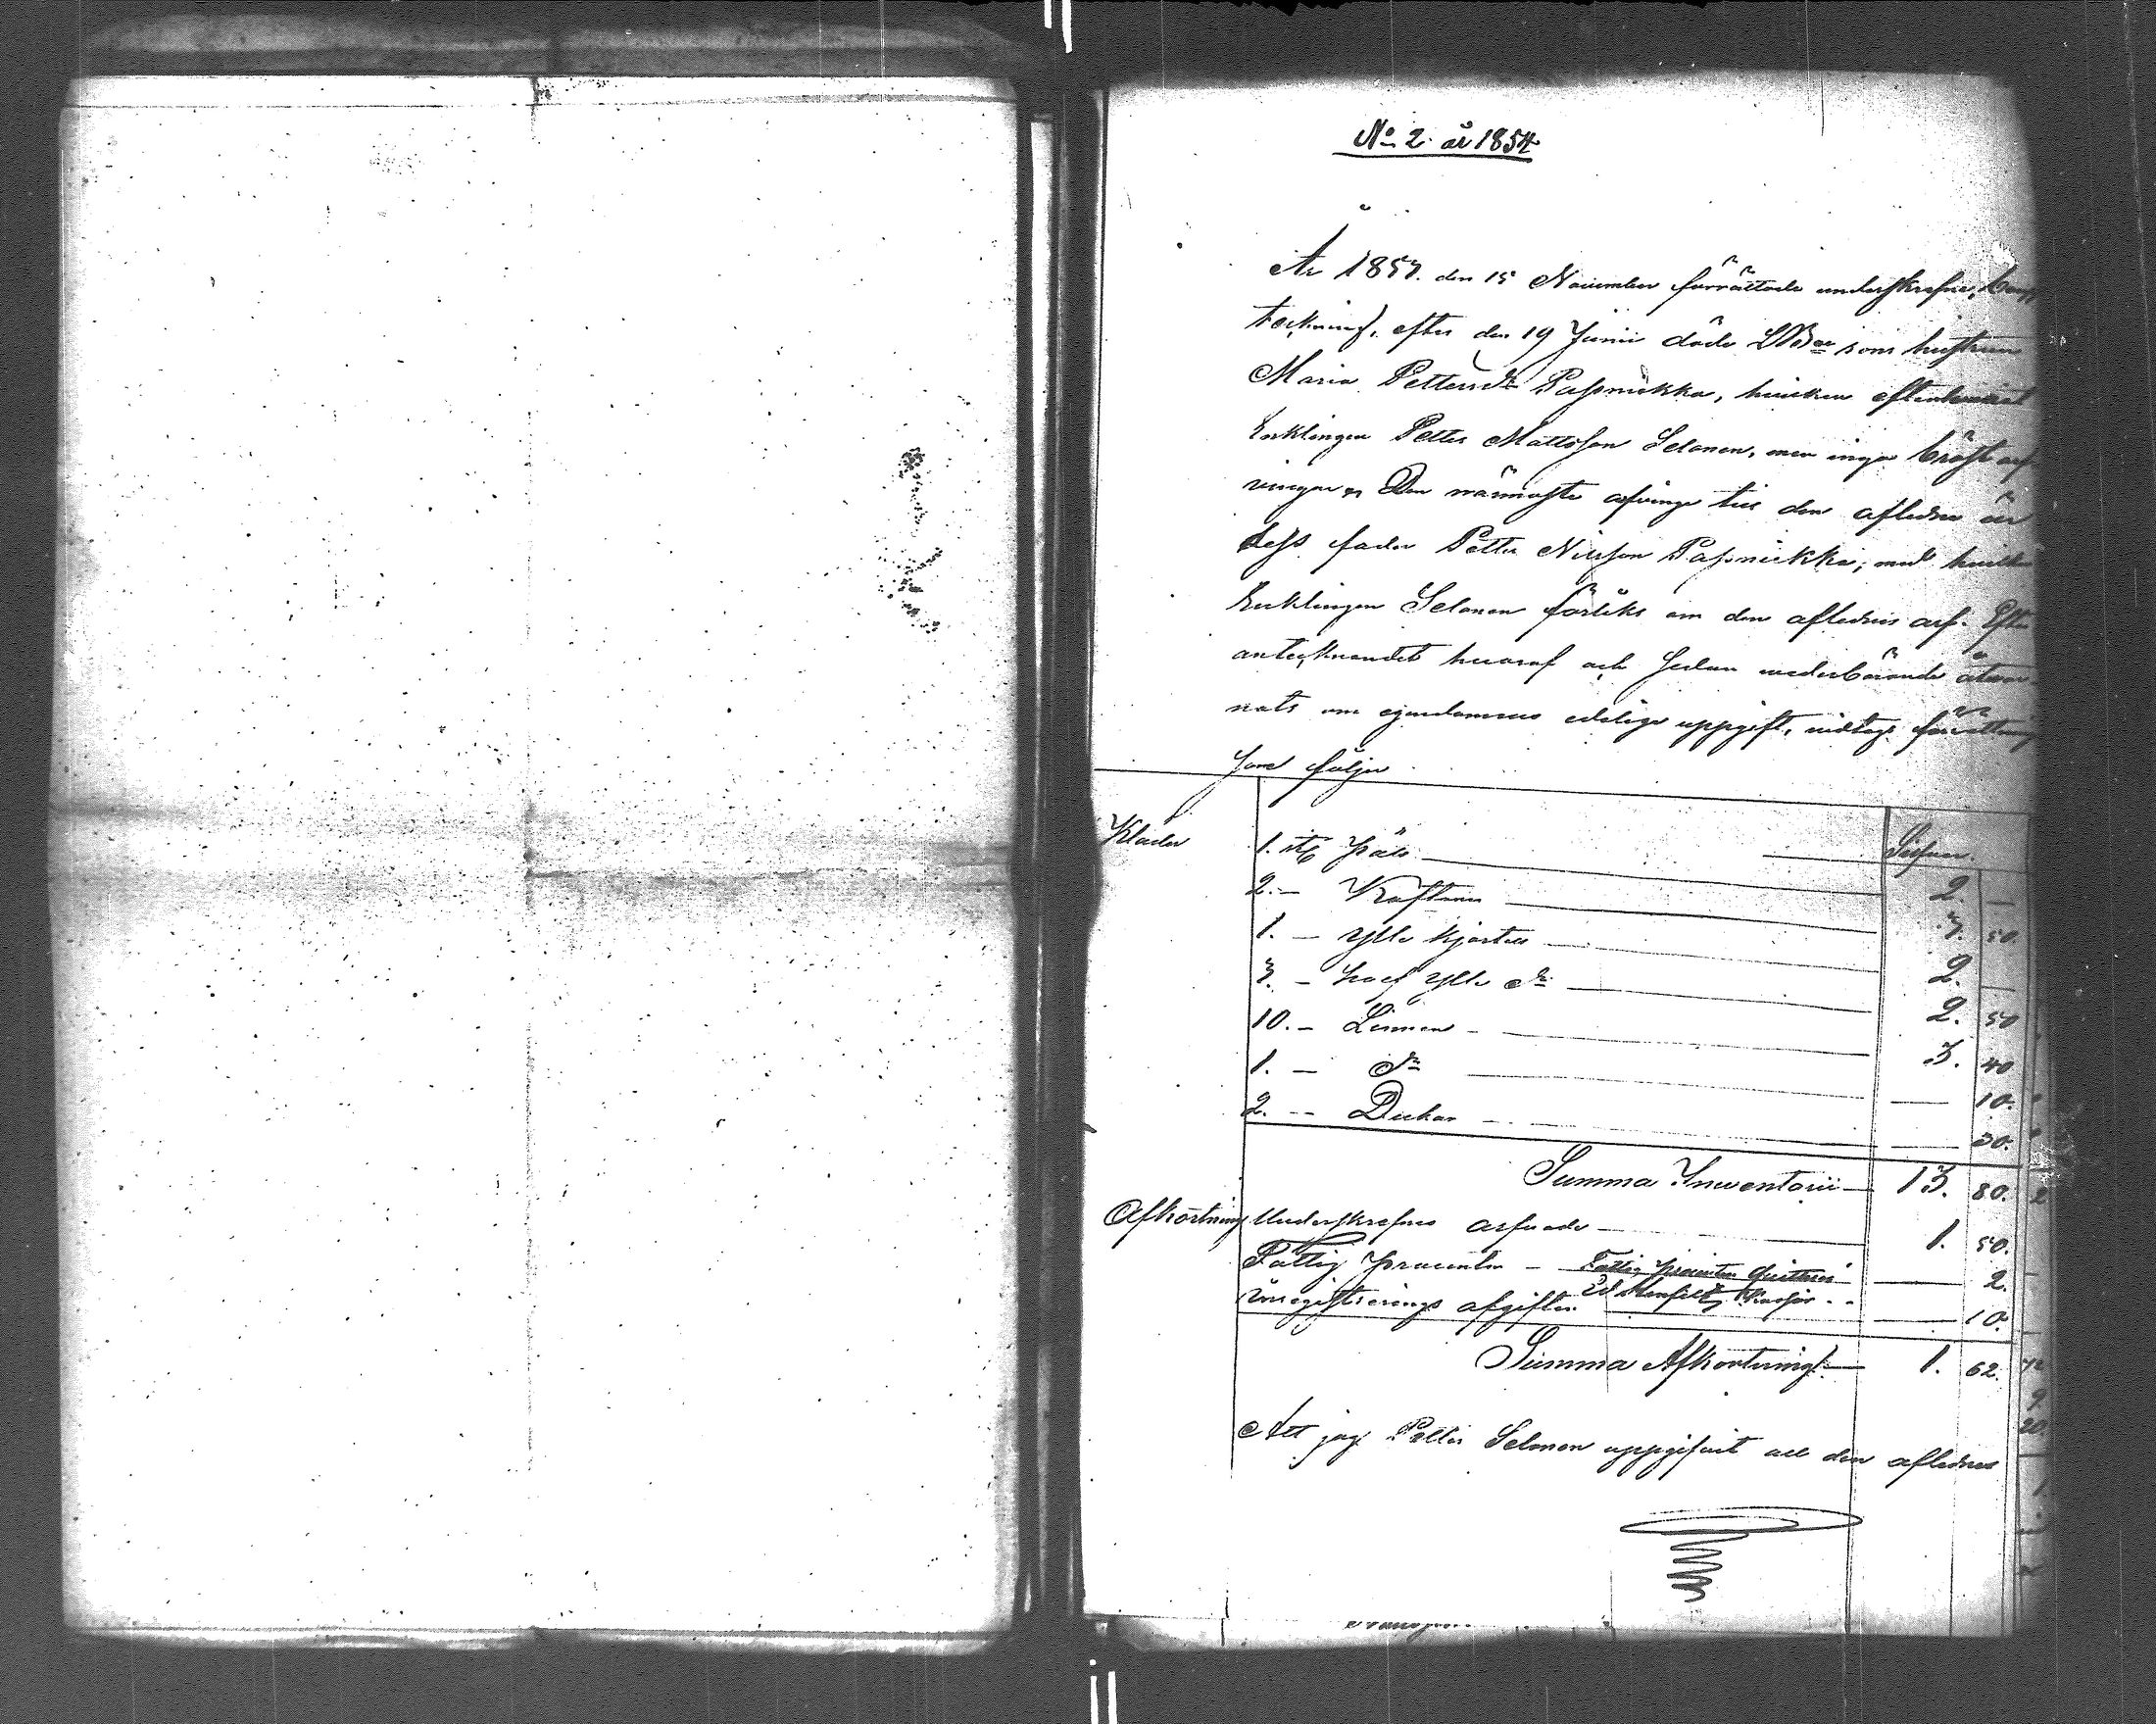 No 2 år 1854
År 1853. den 15 November förrättade underskrefne, boupp
teckning, efter den 19 Junii döde hustrun
Maria Pettersdr Papinukka, hvilken efterlemnat
Enklingen Petter Mattsson Selonen, men inga bröst arf
vingar. Den närmaste arfvinge till den afledne är
dess fader Petter Nilsson Papinukka; med hvilken
Enklingen Selonen förlikts om den aflednes arf. Efter
antecknandet hvaraf och sedan wederbörande åtwar-
nats om egendomens edeliga uppgift, vidtogs förrättning
som följer
Kläder 1. st päls Silfver.
2. — Kaftaner 2. —
1. — ylle kjortel 3. 50.
3. — half ylle do 2. —
10. — Linnen 2. 50
1. — do 3. 40
2. — Dukar — 10.
— 30.
Summa Inventarii 13. 80.
Afkortning Underskrefnes arfvode 1. 50.
Fattig procenten — Fattig procenten quitteras — 2.
Inregistrerings afgiften — 10.
Summa Afkortning 1. 62.
Att jag Petter Selonen uppgifvit all den aflednes